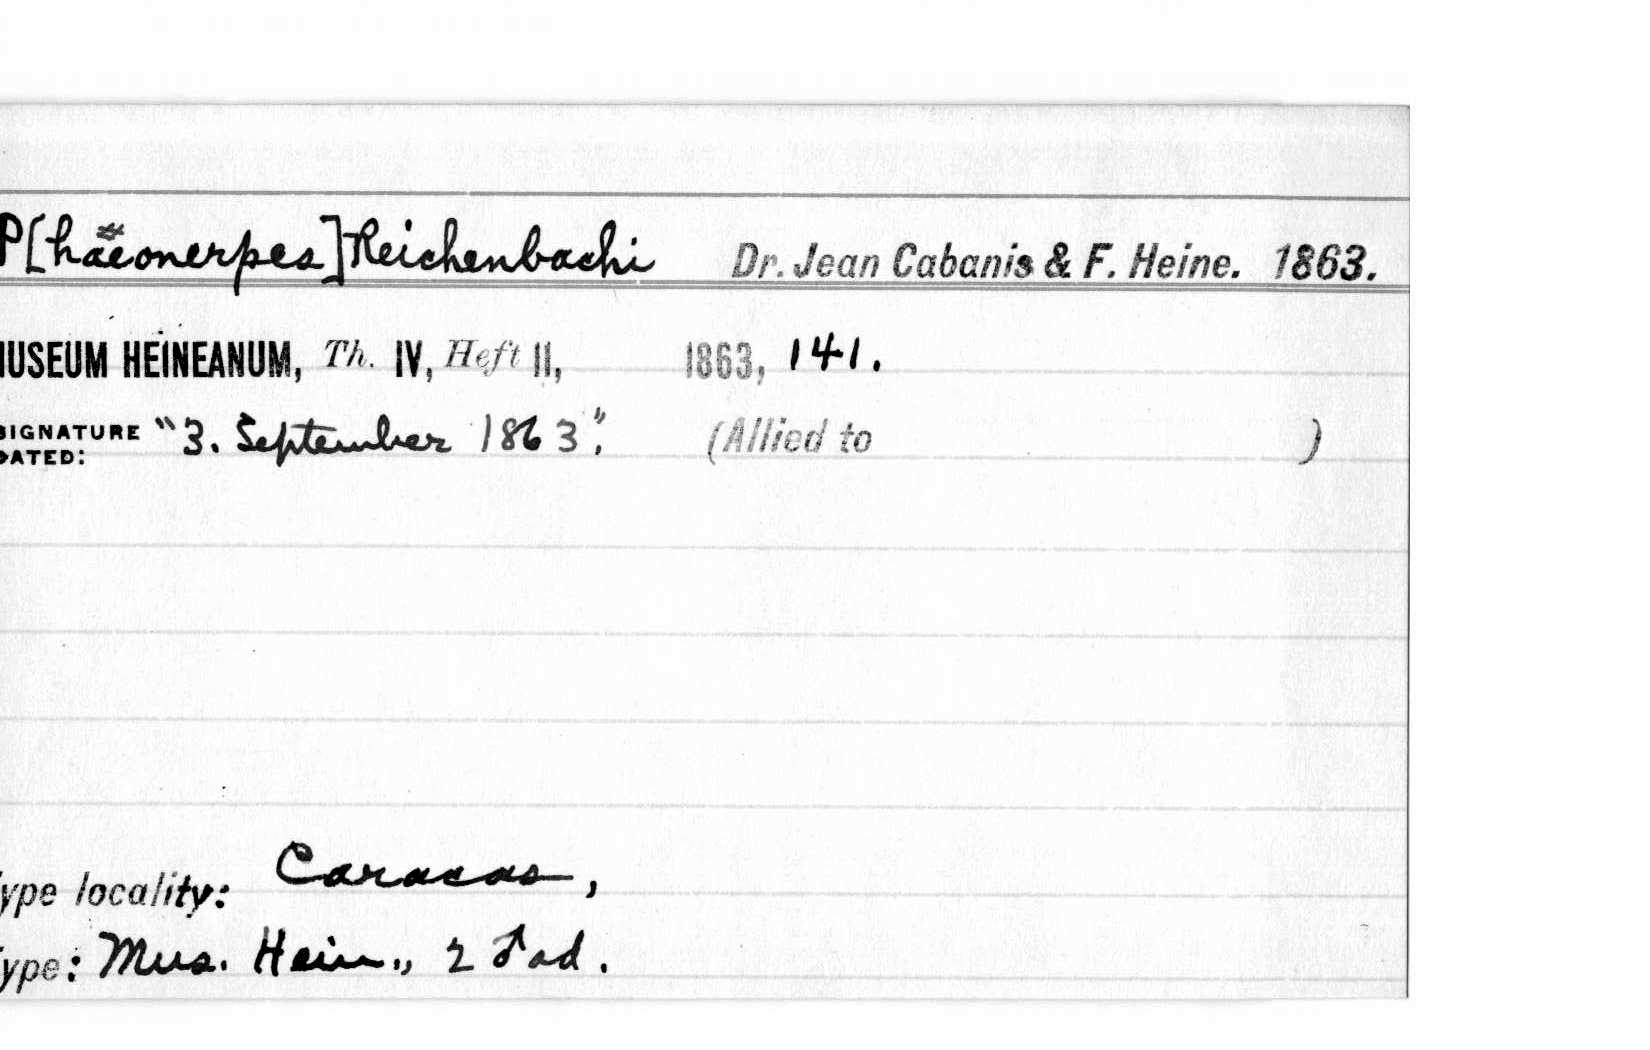 P[haeonerpes] Reichenbachi Dr. Jean Cabanis & F. Heine. 1863.
MUSEUM HEINEANUM, Th. IV, Heft II, 1863, 141.
SIGNATURE DATED: "3. September 1863". (Allied to )
Type locality: Caracas,
Type: Mus. Hein., 2 ♂ ad.